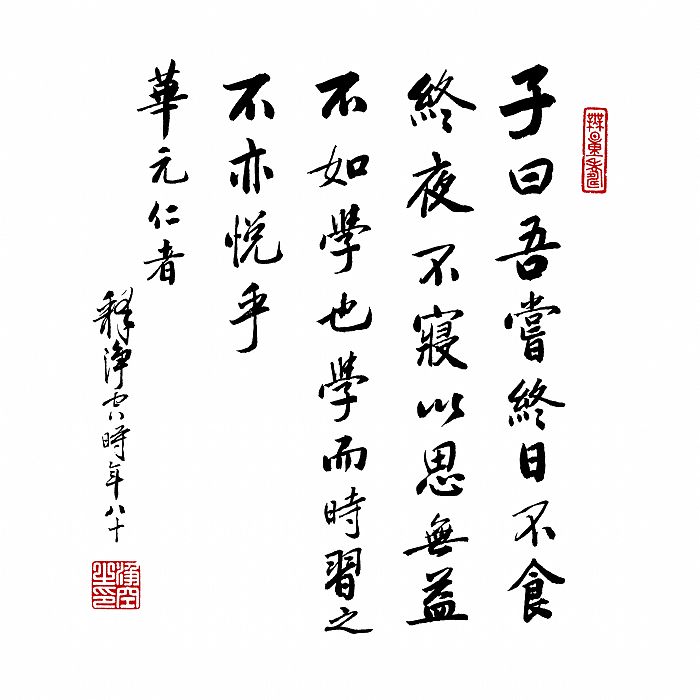 子曰吾嘗終日不食
終夜不寢以思無益
不如學也學而時習之
不亦悅乎
華元仁者
釋淨空時年八十
淨空之印